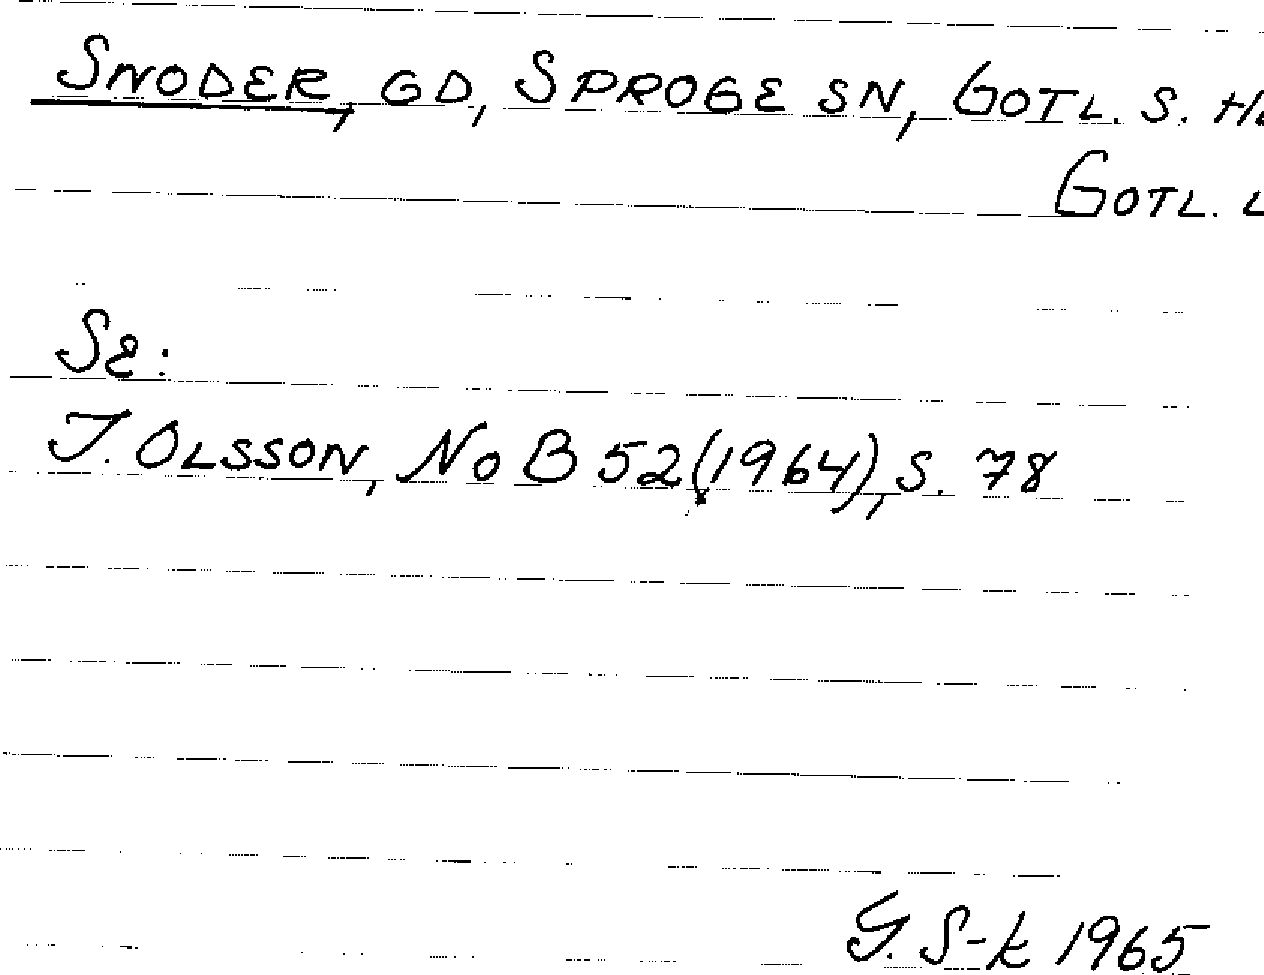 SNODER, GD, SPROGE SN, GOTL. S. H
GOTL. L
SE:
I. OLSSON, NoB 52 (1964), S. 78
G. S-k 1965